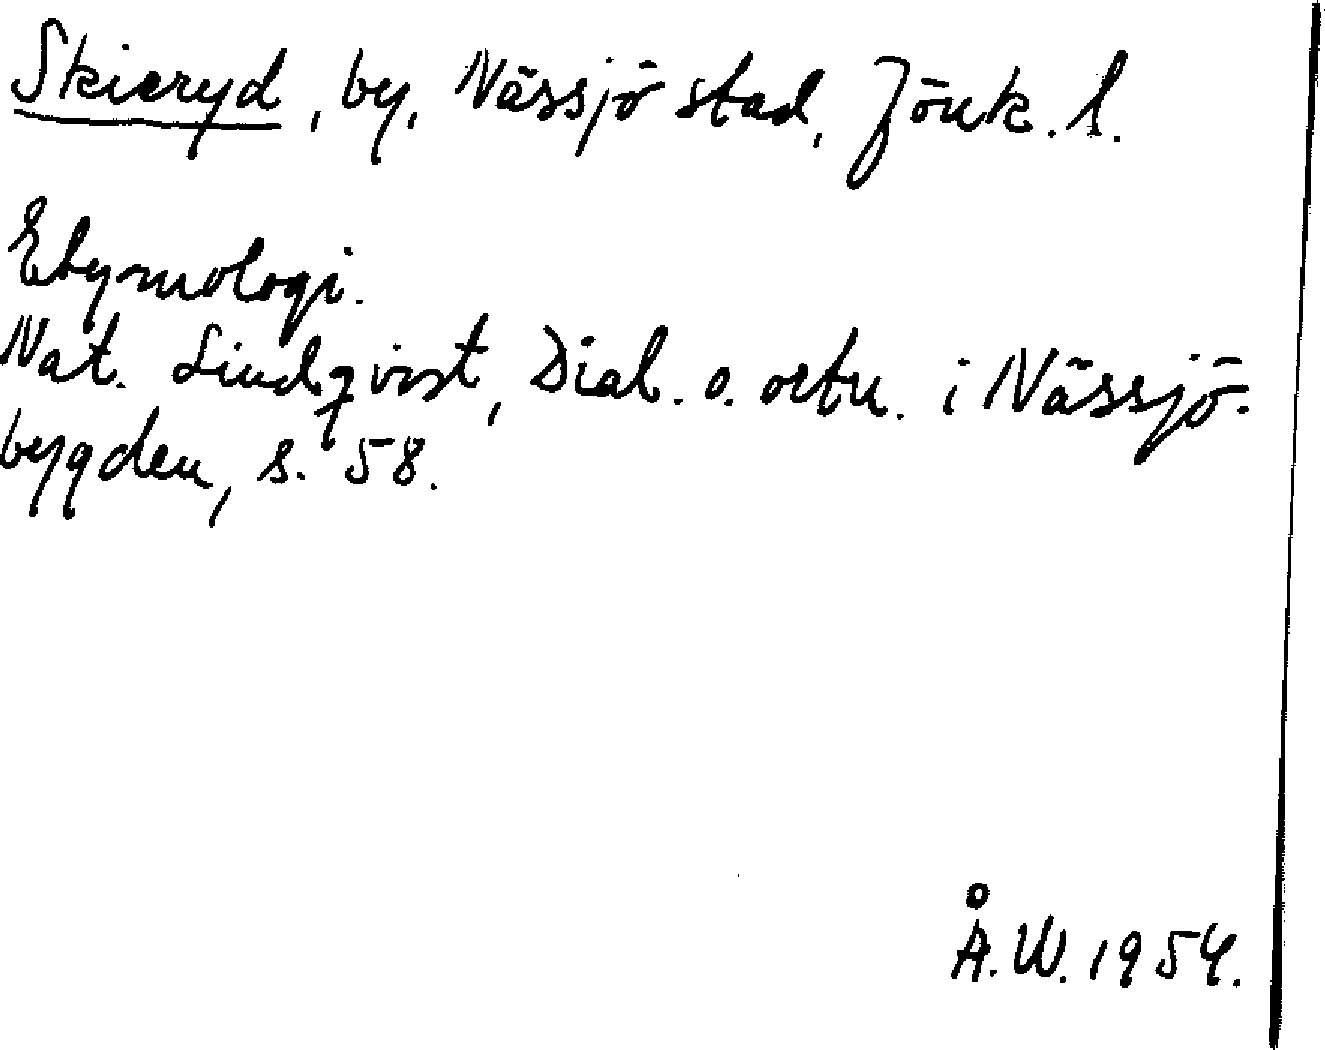 Skieryd, by, Nässjö stad, Jönk. l.
Etymologi.
Nat. Lindqvist, Dial. o. ortn. i Nässjö-
bygden, s. 58.
Å.W. 1954.